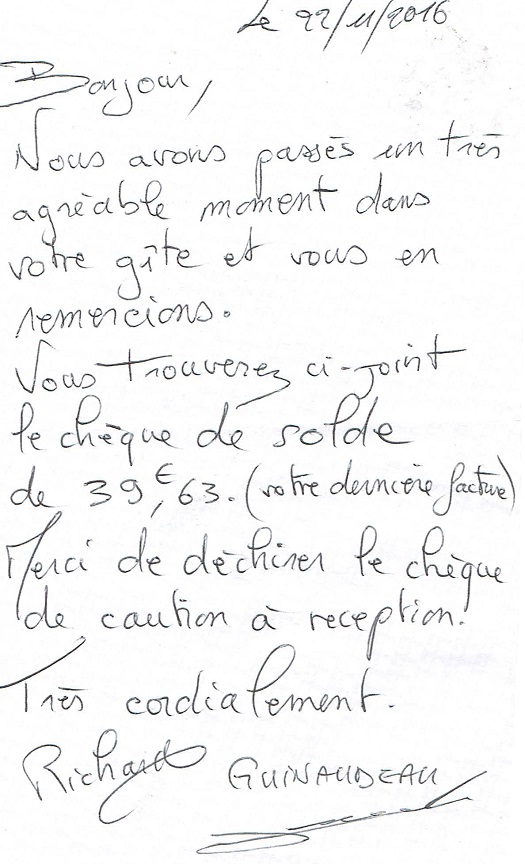 Le 22/11/2016
Bonjour,
Nous avons passés un très
agréable moment dans
votre gîte et vous en
remercions.
Vous trouverez ci-joint
le chèque de solde
de 39,€63. (votre dernière facture)
Merci de déchirer le chèque
de caution à reception.
Très cordialement.
Richard GUINAUDEAU